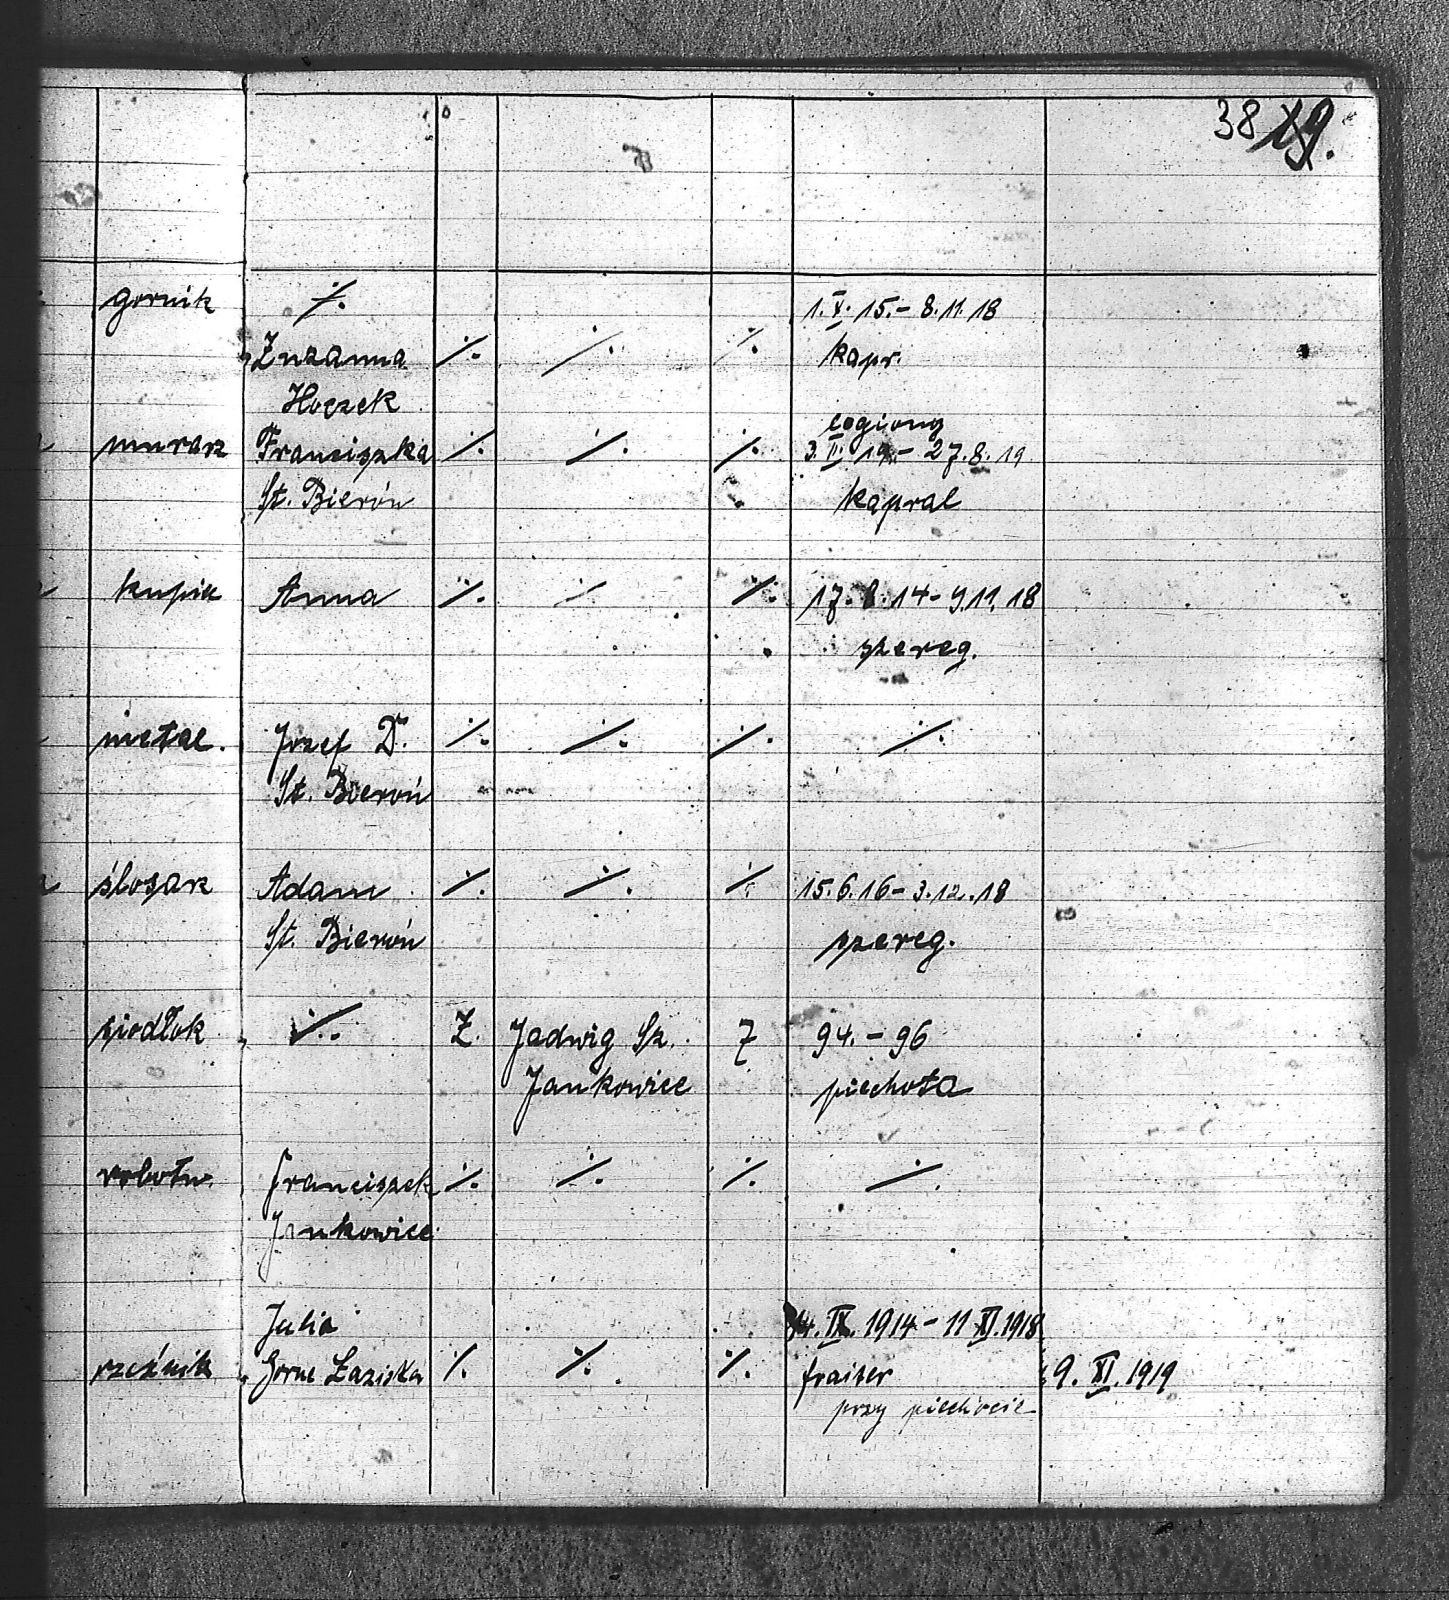 38 19.
gornik ·/. 1. X. 15. – 8. 11. 18
Zuzanna ·/. ·/. ·/. kapr.
Hoczek
legiony
murarz Franciszka ·/. ·/. ·/. 3. II. 19. – 27. 8. 19
St. Bieroń kapral
kupiec Anna ·/. ·/. ·/. 17. 8. 14 – 9. 11. 18
szereg.
metal. Jozef D. ·/. ·/. ·/. ·/.
St. Bieroń
ślosarz Adam ·/. ·/. ·/. 15. 6. 16 – 3. 12. 18
St. Bieroń szereg.
siodłok ·/. Z. Jadwig Sz. 7 94. – 96
Jankowice piechota
robotn. Franciszek ·/. ·/. ·/. ·/.
Jankowice
Julia 14. IX. 1914 – 11 XI. 1918
rzeźnik Gorne Łaziska ·/. ·/. ·/. fraiter 9. XI. 1919
przy piechocie